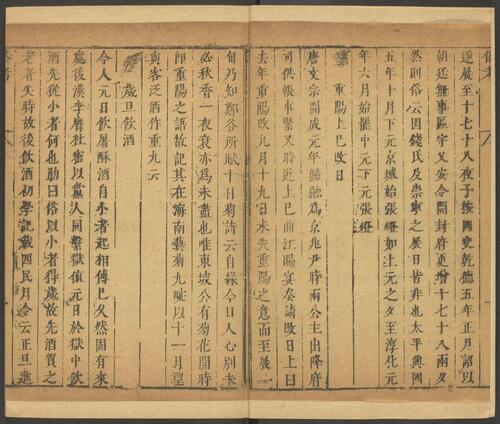 遂展至十七十八夜予按國史乾德五年正月詔以
朝廷無事區宇乂安令開封府更增十七十八兩夕
然則俗云因錢氏及崇寧之展日皆非也太平興國
五年十月下元京城始張燈如上元之夕至淳化元
年六月始罷中元下元張燈
重陽上巳改日
唐文宗開成元年歸融為京兆尹時兩公主出降府
司供帳事繁又時近上巳曲江賜宴奏請改日上曰
去年重陽改九月十九日未失重陽之意而至展一
旬乃知鄭谷所賦十日菊詩云自緣今日人心別未
必秋香一夜衰亦為未盡也唯東坡公有菊花開時
即重陽之語故記其在海南藝菊九畹以十一月望
與客泛酒作重九云
歲旦飲酒
今人元日飲屠酥酒自小者起相傳已久然固有來
處後漢李膺杜密以黨人同繫獄值元日於獄中飲
酒先從小者何也勛曰俗以小者得歲故先酒賀之
老者失時故後飲酒初學記載四民月令云正旦進